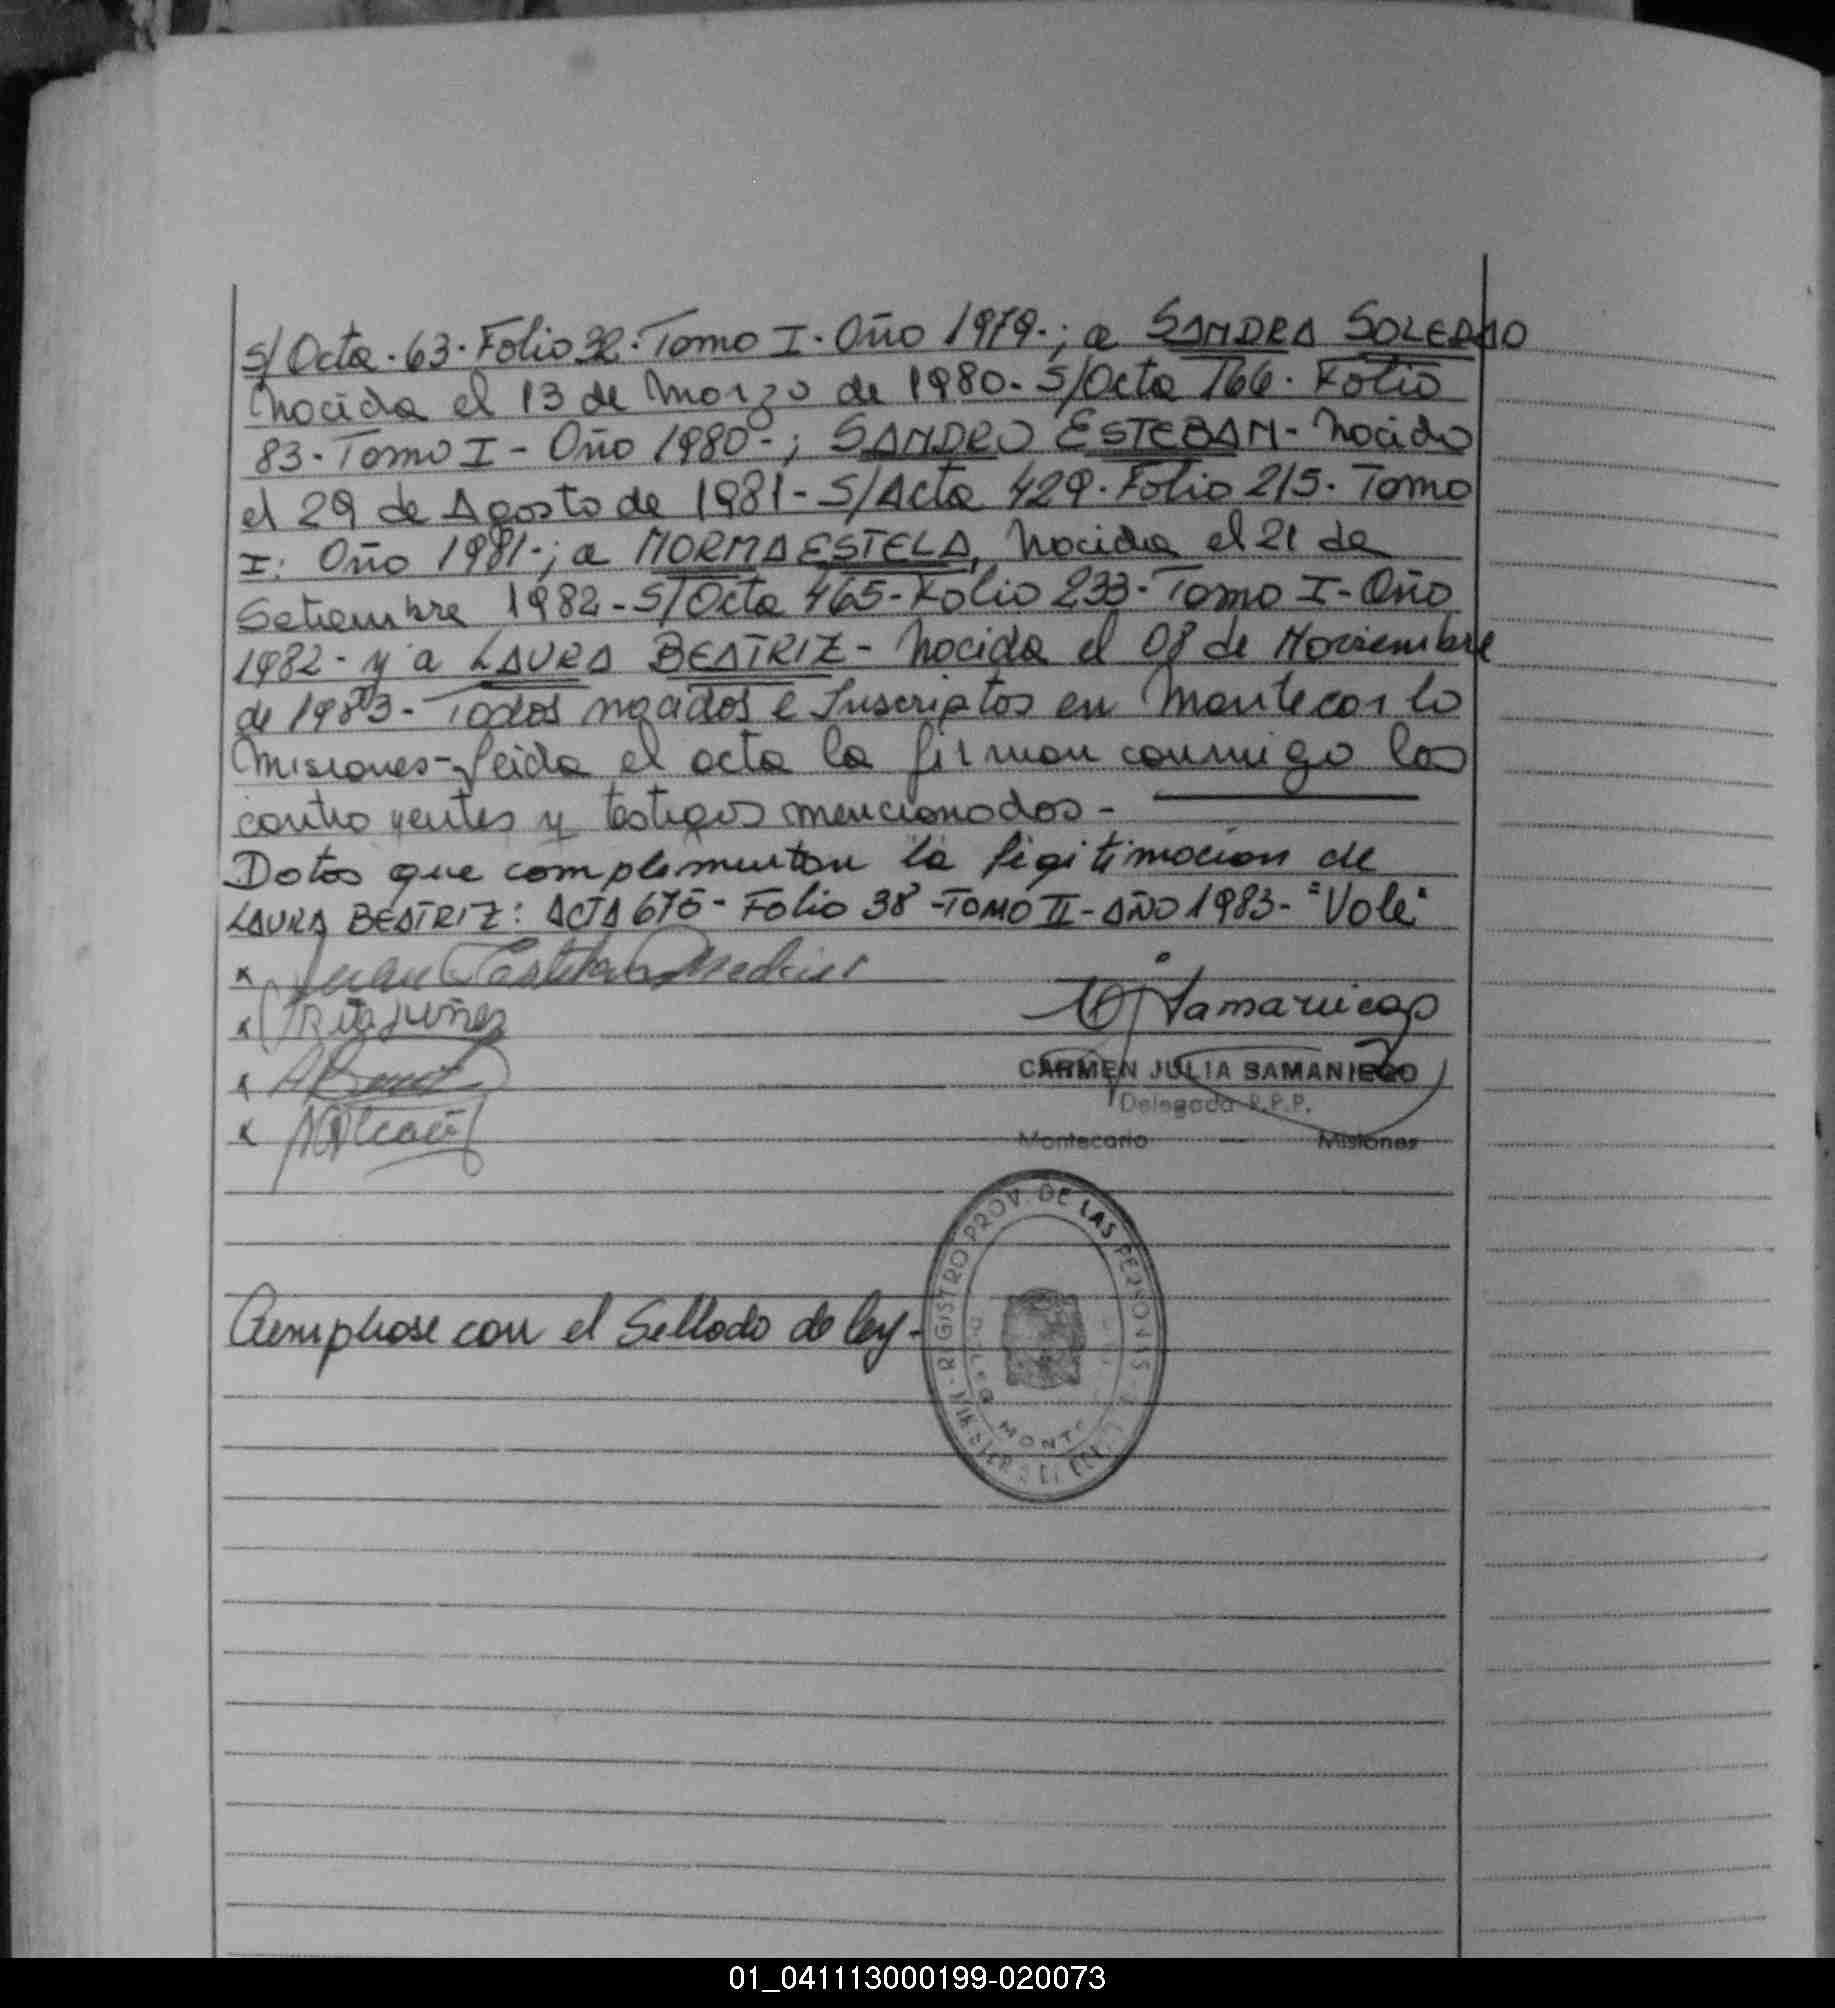 S/Acta. 63. Folio 32. Tomo I. Año 1979-; a SANDRA SOLEDAD
nacida el 13 de Marzo de 1980- S/Acta 166. Folio
83- Tomo I - Año 1980-; SANDRO ESTEBAN- nacido
el 29 de Agosto de 1981- S/Acta 429. Folio 215. Tomo
I: Año 1981-; a NORMA ESTELA, nacida el 21 de
Setiembre 1982- S/Acta 465- Folio 233- Tomo I- Año
1982- y a LAURA BEATRIZ- nacida el 08 de Noviembre
de 1983- Todos nacidos e Inscriptos en Montecarlo
Misiones- Leida el acta la firman conmigo los
contrayentes y testigos mencionados-
Datos que complementan la legitimación de
LAURA BEATRIZ: ACTA 675- Folio 38 -TOMO II- AÑO 1983- "Vale"
x Juan Esteban
x Rita Nuñez
x
x
CARMEN JULIA SAMANIEGO
Delegada R.P.P.
Montecarlo Misiones
REGISTRO PROV. DE LAS PERSONAS
Cumplase con el Sellado de ley-
01_041113000199-020073